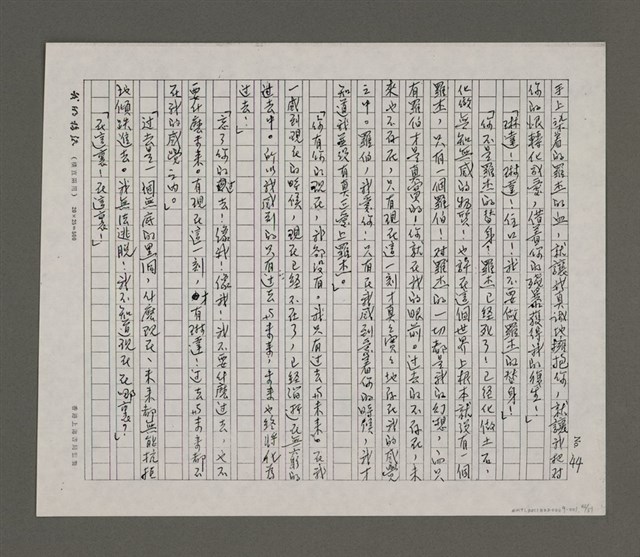 44
手上染着的羅杰的血，就讓我真誠地擁抱你，就讓我把對
你的恨轉化成愛，借着你的強暴獲得我的得生！」
「琳達！琳達！住口！我不要做羅杰的替身！」
「你不是羅杰的替身，羅杰已經死了！已經化做土石，
化做無知無感的物質。也許在這個世界上根本就沒有一個
羅杰，只有一個羅伯！對羅杰的一切都是我的幻想，而只
有羅伯才是真實的！你就在我的眼前。過去的不存在，未
來也不存在，只有現在這一刻才真真實實地存在我的感覺
之中。羅伯，我愛你！只有在我感到愛着你的時候，我才
知道我並沒有真正愛上羅杰。」
「你有你的現在，我卻沒有。我只有過去與未來。在我
一感到現在的時候，現在已經不在了，已經消逝在無窮的
過去中。所以我感到的只有過去與未來，未來也終將化為
過去！」
「忘了你的過去！像我！像我！我不要什麼過去，也不
要什麼未來。有現在這一刻，才有琳達！過去與未來都不
在我的感覺之內。」
「過去是一個無底的黑洞，什麼現在、未來都無能抗拒
地傾跌進去。我無法逃脫！我不知道現在在哪裏？」
「在這裏！在這裏！」
(橫直兩用) 20×25=500